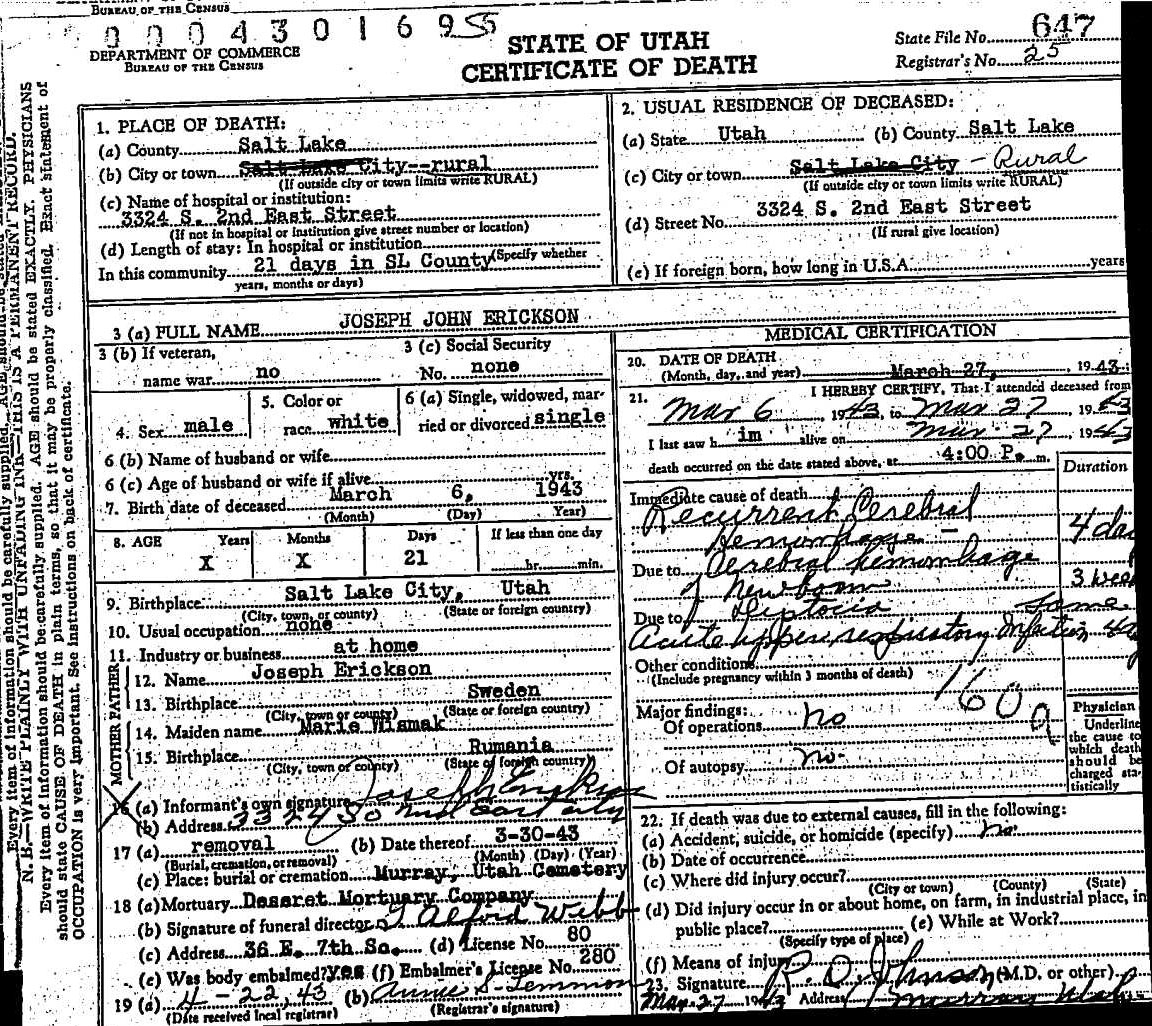 BUREAU OF THE CENSUS
0 0 0 4 3 0 1 6 9 55
DEPARTMENT OF COMMERCE
BUREAU OF THE CENSUS
STATE OF UTAH
CERTIFICATE OF DEATH
State File No. 647
Registrar's No. 25
Every item of information should be carefully supplied.
N. B.—WRITE PLAINLY WITH UNFADING INK—THIS IS A PERMANENT RECORD.
Every item of information should be carefully supplied. AGE should be stated EXACTLY. PHYSICIANS
should state CAUSE OF DEATH in plain terms, so that it may be properly classified. Exact statement of
OCCUPATION is very important. See instructions on back of certificate.
1. PLACE OF DEATH:
(a) County Salt Lake
(b) City or town Salt Lake City--rural
(If outside city or town limits write RURAL)
(c) Name of hospital or institution:
3324 S. 2nd East Street
(If not in hospital or institution give street number or location)
(d) Length of stay: In hospital or institution
(Specify whether
In this community 21 days in SL County
years, months or days)
2. USUAL RESIDENCE OF DECEASED:
(a) State Utah (b) County Salt Lake
(c) City or town Salt Lake City - Rural
(If outside city or town limits write RURAL)
(d) Street No. 3324 S. 2nd East Street
(If rural give location)
(e) If foreign born, how long in U.S.A. years
3 (a) FULL NAME JOSEPH JOHN ERICKSON
3 (b) If veteran,
name war no
3 (c) Social Security
No. none
4. Sex male
5. Color or
race white
6 (a) Single, widowed, mar-
ried or divorced single
6 (b) Name of husband or wife
6 (c) Age of husband or wife if alive yrs.
7. Birth date of deceased March 6, 1943
(Month) (Day) Year)
8. AGE Years Months Days If less than one day
X X 21 hr. min.
9. Birthplace Salt Lake City, Utah
(City, town, or county) (State or foreign country)
10. Usual occupation none
11. Industry or business at home
FATHER
12. Name Joseph Erickson
13. Birthplace Sweden
(City, town or county) (State or foreign country)
MOTHER
14. Maiden name Marie Wismak
15. Birthplace Rumania
(City, town or county) (State or foreign country)
16 (a) Informant's own signature Joseph Erickson
(b) Address 3324 So 2nd East City
17 (a) removal (b) Date thereof 3-30-43
(Burial, cremation, or removal) (Month) (Day) (Year)
(c) Place: burial or cremation Murray, Utah Cemetery
18 (a) Mortuary Deseret Mortuary Company
(b) Signature of funeral director J Alford Webb
(c) Address 36 E. 7th So. (d) License No. 80
(e) Was body embalmed? yes (f) Embalmer's License No. 280
19 (a) 4-22, 43 (b) Annie S. Lemmon
(Date received local registrar) (Registrar's signature)
MEDICAL CERTIFICATION
20. DATE OF DEATH
(Month, day, and year) March 27, 1943
21. I HEREBY CERTIFY, That I attended deceased from
Mar 6 1943, to Mar 27 1943
I last saw h im alive on Mar 27 1943
death occurred on the date stated above, at 4:00 P. m.
Duration
Immediate cause of death
Recurrent Cerebral
Hemorrhage - 4 day
Due to Cerebral hemorrhage
of Newborn 3 week
Due to Same
Acute upper respiratory Infection 4d
Other conditions
(Include pregnancy within 3 months of death)
160a
Major findings:
Of operations no
Of autopsy no
Physician
Underline
the cause to
which death
should be
charged sta-
tistically
22. If death was due to external causes, fill in the following:
(a) Accident, suicide, or homicide (specify) no
(b) Date of occurrence
(c) Where did injury occur?
(City or town) (County) (State)
(d) Did injury occur in or about home, on farm, in industrial place, in
public place? (e) While at Work?
(Specify type of place)
(f) Means of injury
23. Signature R. O. Johnson (M.D. or other)
Mar. 27 1943 Address Murray Utah